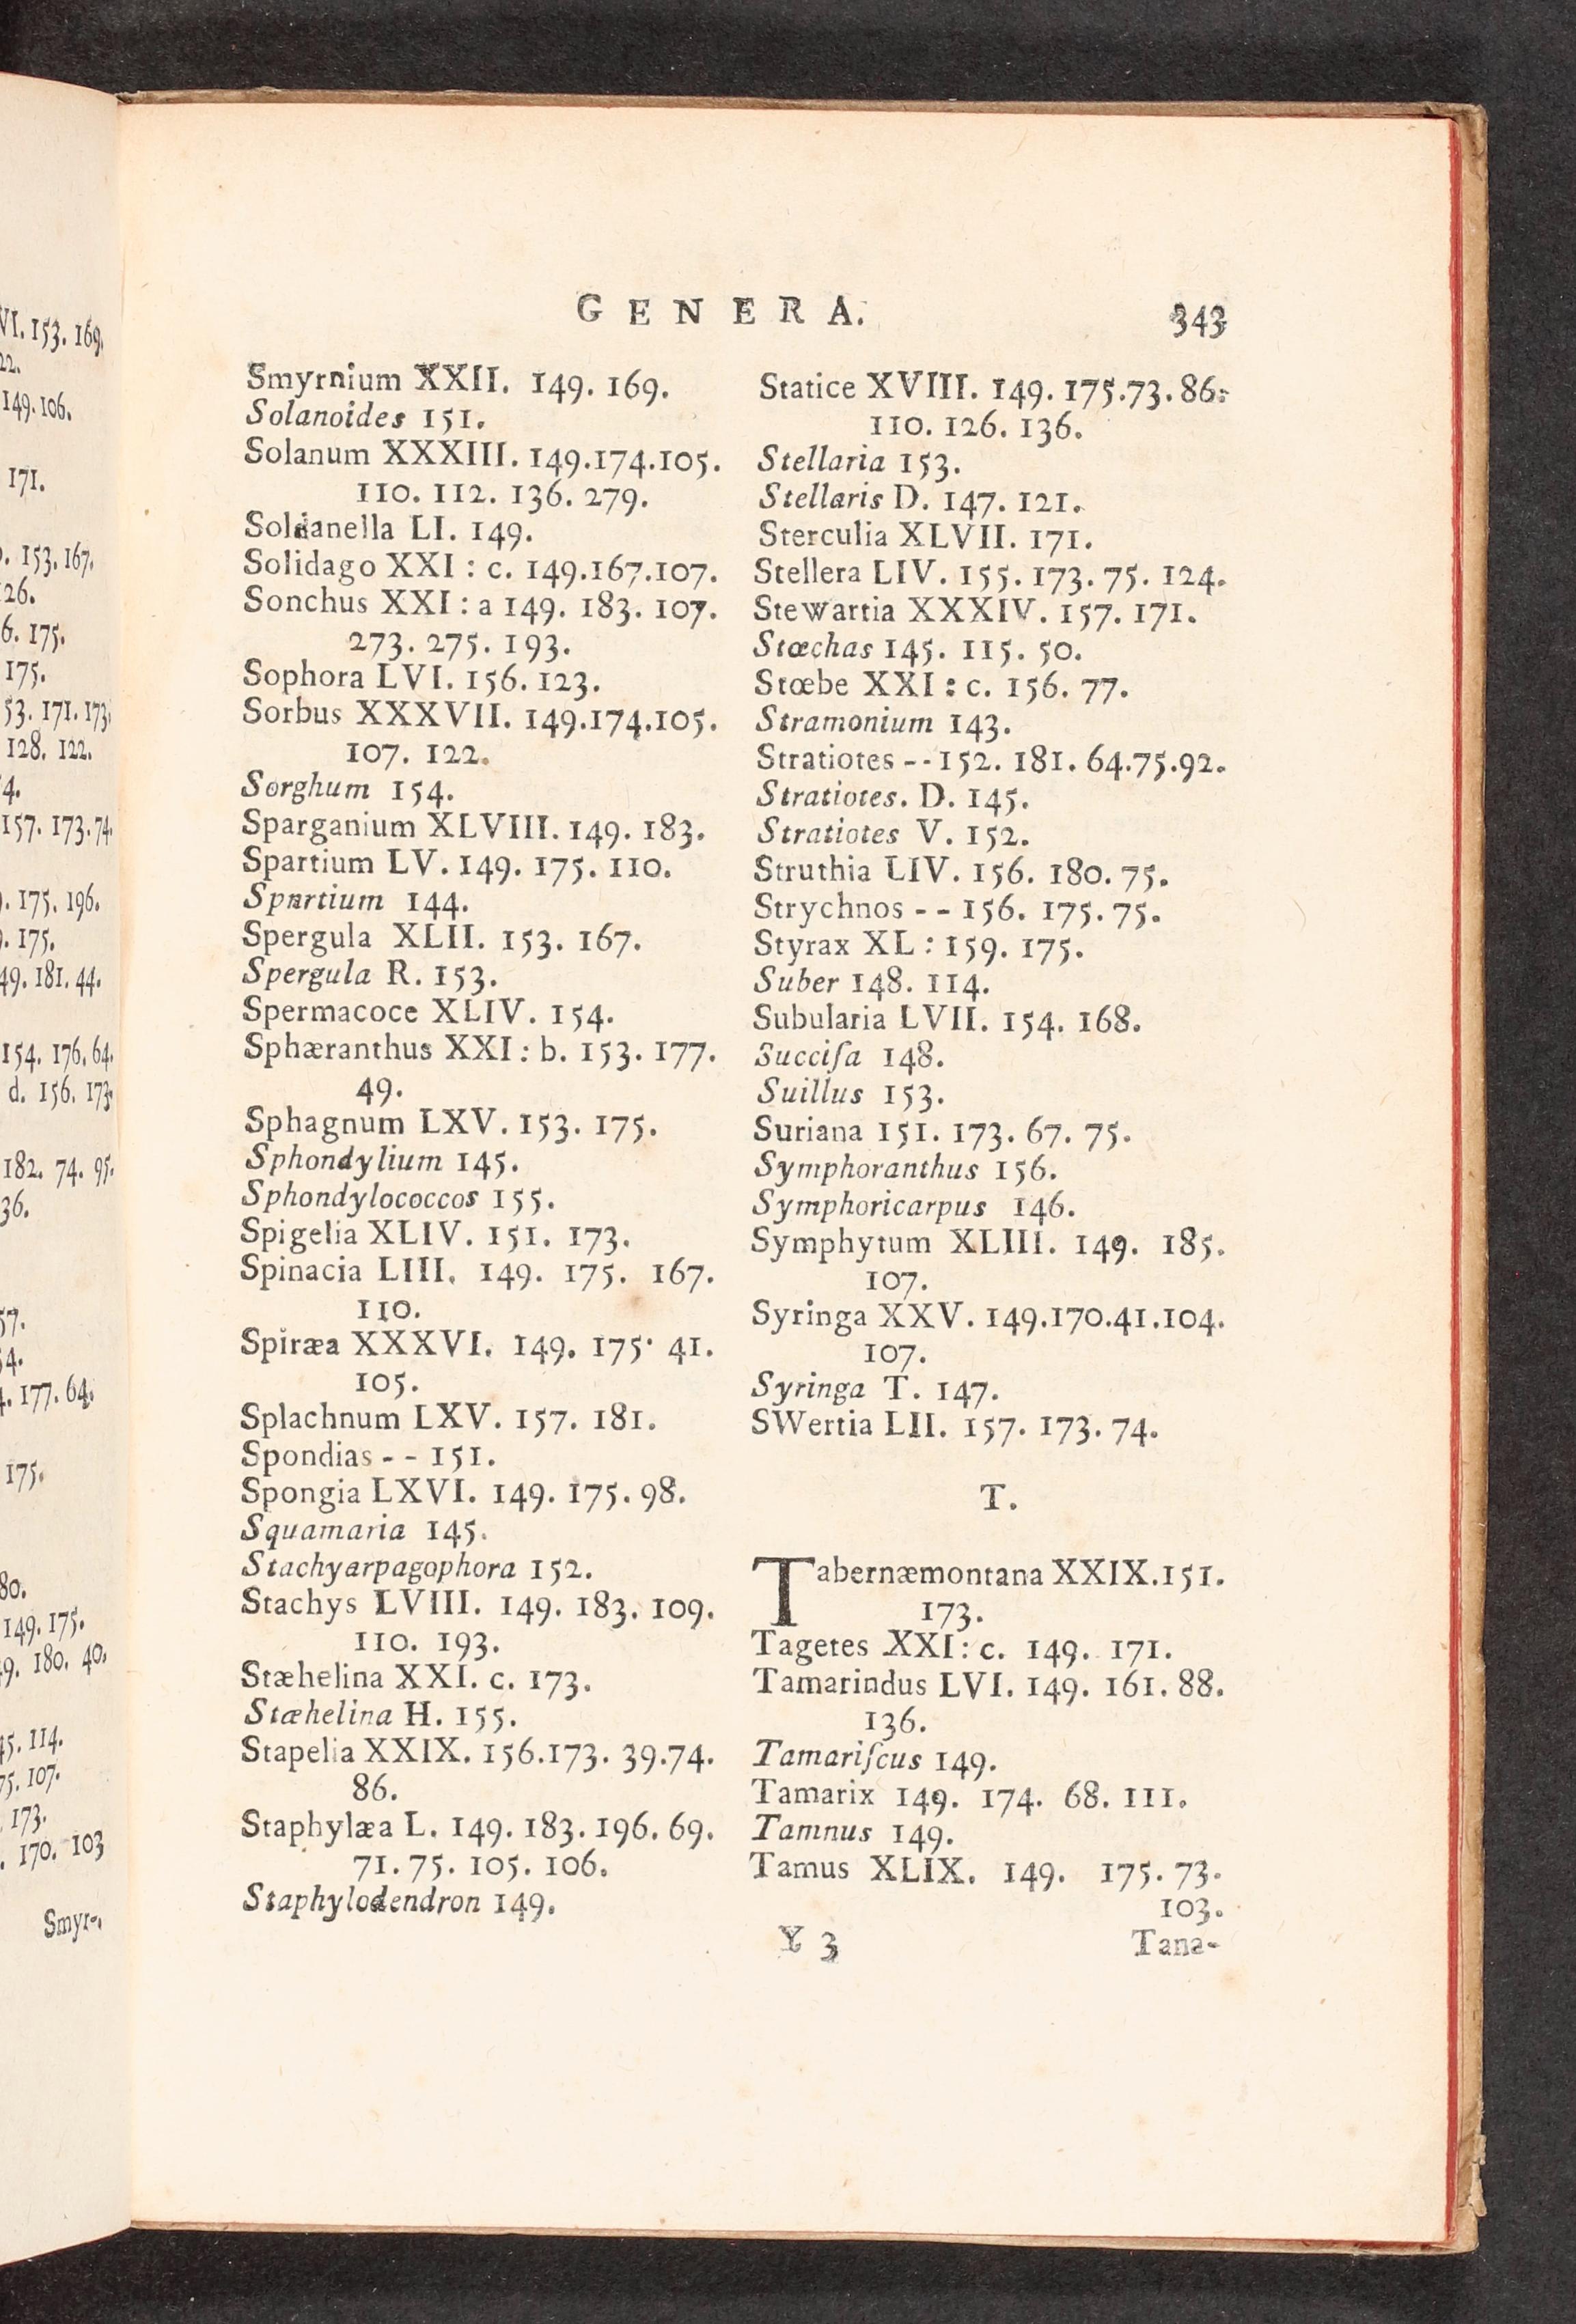 GENERA. 343
Smyrnium XXII. 149. 169.
Solanoides 151.
Solanum XXXIII. 149.174.105.
110. 112. 136. 279.
Soldanella LI. 149.
Solidago XXI : c. 149.167.107.
Sonchus XXI : a 149. 183. 107.
273. 275. 193.
Sophora LVI. 156. 123.
Sorbus XXXVII. 149.174.105.
107. 122.
Sorghum 154.
Sparganium XLVIII. 149. 183.
Spartium LV. 149. 175. 110.
Spartium 144.
Spergula XLII. 153. 167.
Spergula R. 153.
Spermacoce XLIV. 154.
Sphæranthus XXI : b. 153. 177.
49.
Sphagnum LXV. 153. 175.
Sphondylium 145.
Sphondylococcos 155.
Spigelia XLIV. 151. 173.
Spinacia LIII. 149. 175. 167.
110.
Spiræa XXXVI. 149. 175. 41.
105.
Splachnum LXV. 157. 181.
Spondias - - 151.
Spongia LXVI. 149. 175. 98.
Squamaria 145.
Stachyarpagophora 152.
Stachys LVIII. 149. 183. 109.
110. 193.
Stæhelina XXI. c. 173.
Stæhelina H. 155.
Stapelia XXIX. 156.173. 39.74.
86.
Staphylæa L. 149. 183. 196. 69.
71. 75. 105. 106.
Staphylodendron 149.
Statice XVIII. 149. 175.73. 86.
110. 126. 136.
Stellaria 153.
Stellaris D. 147. 121.
Sterculia XLVII. 171.
Stellera LIV. 155. 173. 75. 124.
SteWartia XXXIV. 157. 171.
Stœchas 145. 115. 50.
Stœbe XXI : c. 156. 77.
Stramonium 143.
Stratiotes - - 152. 181. 64.75.92.
Stratiotes. D. 145.
Stratiotes V. 152.
Struthia LIV. 156. 180. 75.
Strychnos - - 156. 175. 75.
Styrax XL : 159. 175.
Suber 148. 114.
Subularia LVII. 154. 168.
Succiſa 148.
Suillus 153.
Suriana 151. 173. 67. 75.
Symphoranthus 156.
Symphoricarpus 146.
Symphytum XLIII. 149. 185.
107.
Syringa XXV. 149.170.41.104.
107.
Syringa T. 147.
SWertia LII. 157. 173. 74.
T.
Tabernæmontana XXIX.151.
173.
Tagetes XXI : c. 149. 171.
Tamarindus LVI. 149. 161. 88.
136.
Tamariſcus 149.
Tamarix 149. 174. 68. 111.
Tamnus 149.
Tamus XLIX. 149. 175. 73.
103.
Y 3 Tana-